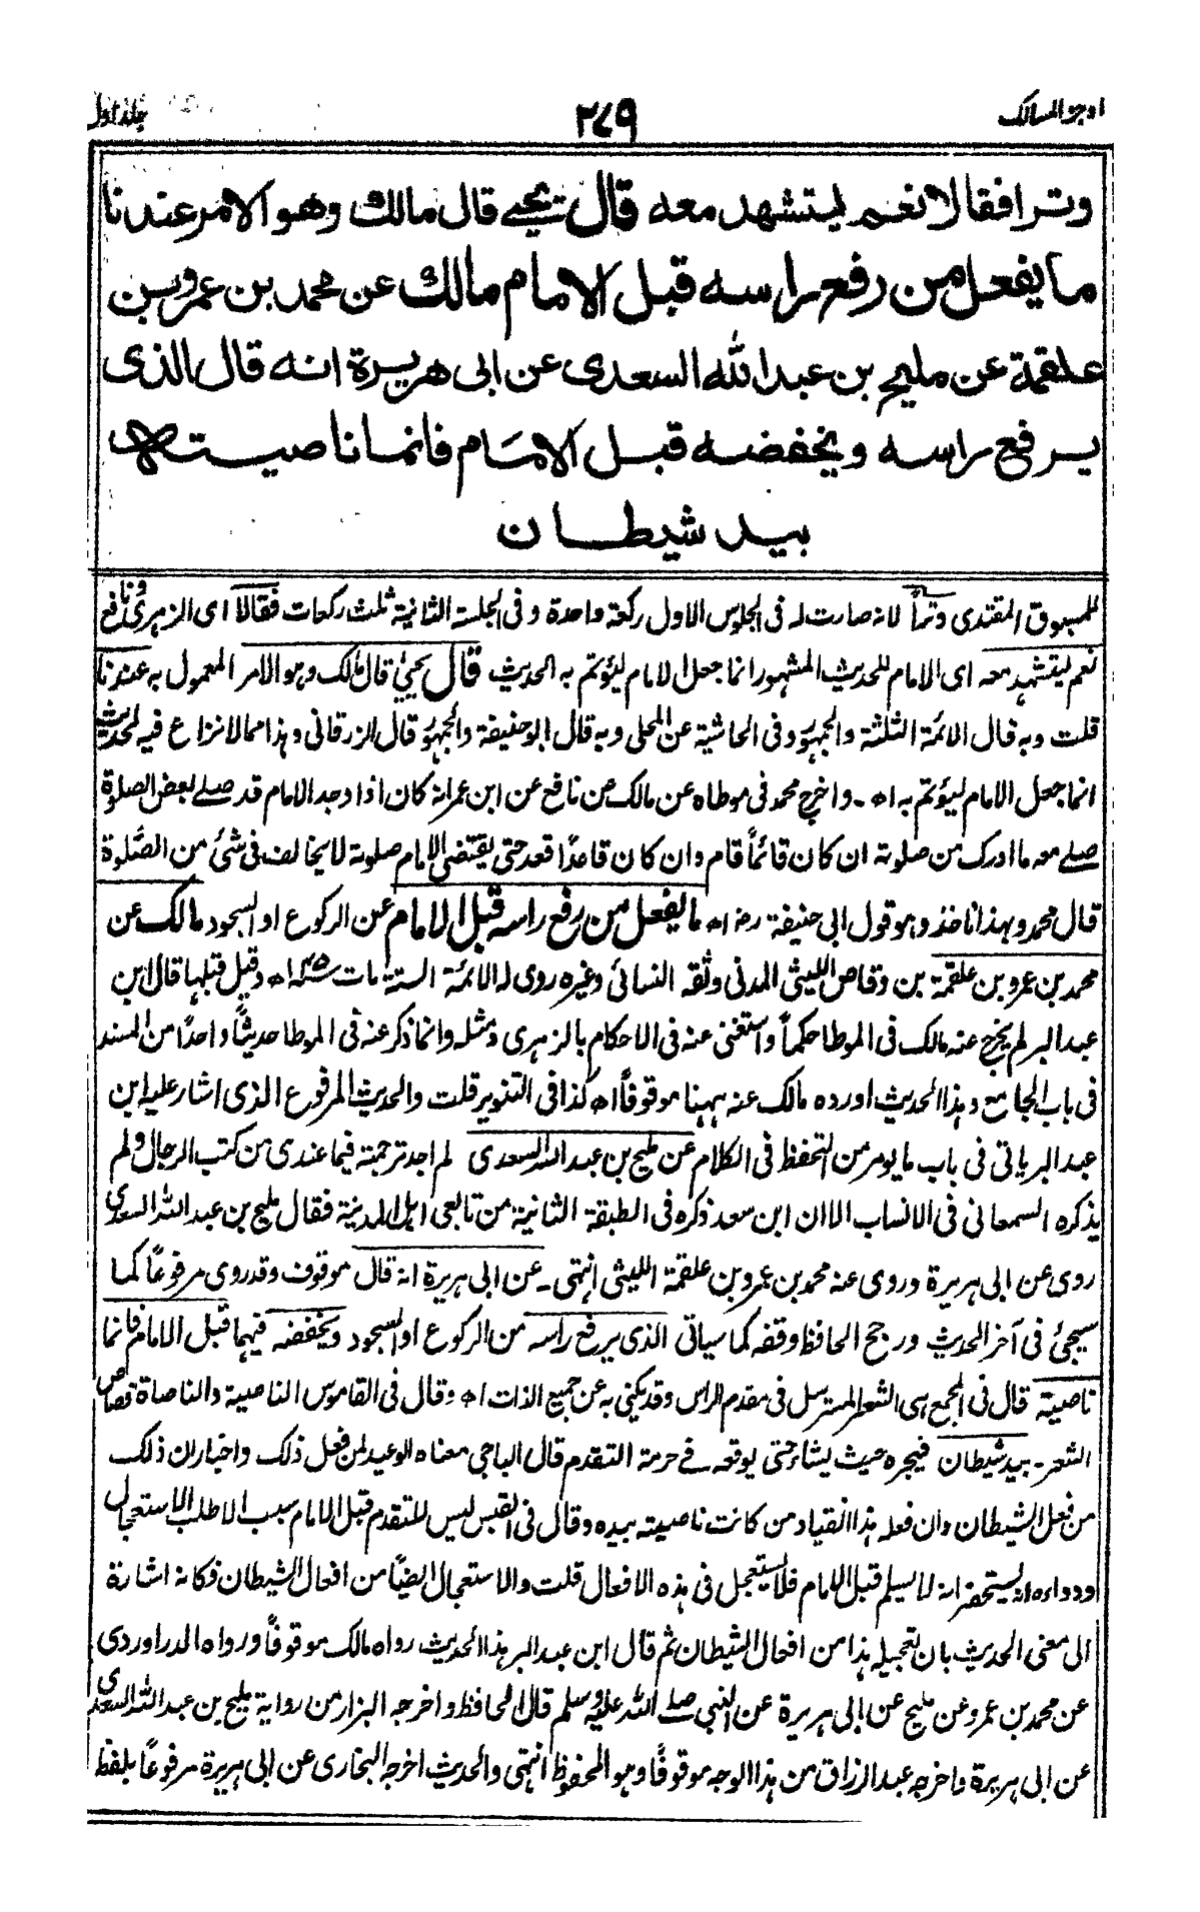 اوجز المسالك
٢٧٩
جلد اول
وتر افقالا نعم ليتشهد معه قال يحيى قال مالك وهو الامر عندنا
ما يفعل من رفع راسه قبل الامام مالك عن محمد بن عمرو بن
علقمة عن مليح بن عبد الله السعدى عن ابى هريرة انه قال الذى
يرفع راسه ويخفضه قبل الامام فانما ناصيته
بيد شيطان
للمسبوق المقتدى وترا لانه صارت له فى الجلوس الاول ركعة واحدة وفى الجلسة الثانية ثلث ركعات فقالا اى الزهرى ونافع
نعم ليتشهد معه اى الامام للحديث المشهور انما جعل الامام ليؤتم به الحديث قال يحيى قال مالك وهو الامر المعمول به عندنا
قلت وبه قال الائمة الثلثة والجمهور وفى الحاشية عن المحلى وبه قال ابو حنيفة والجمهور قال الزرقانى وهذا مما لا نزاع فيه لحديث
انما جعل الامام ليؤتم به اه - واخرج محمد فى موطاه عن مالك عن نافع عن ابن عمر انه كان اذا وجد الامام قد صلے بعض الصلوة
صلے معه ما ادرك من صلوته ان كان قائماً قام وان كان قاعدًا قعد حتى يقتضى الامام صلوته لا يخالف فى شئ من الصلوة
قال محمد وبهذا ناخذ وهو قول ابى حنيفة رض اه ما يفعل من رفع راسه قبل الامام عن الركوع او السجود مالك عن
محمد بن عمرو بن علقمة بن وقاص الليثى المدنى وثقه النسائى وغيره روى له الائمة الستة مات ١٤٥ه وقيل قبلها قال ابن
عبد البر لم يخرج عنه مالك فى الموطا حكماً واستغنى عنه فى الاحكام بالزهرى ومثله وانما ذكر عنه فى الموطا حديثاً واحدًا من المسند
فى باب الجامع وهذا الحديث اورده مالك عنه ههنا موقوفاً اه كذا فى التنوير قلت والحديث المرفوع الذى اشار عليه ابن
عبد البر ياتى فى باب ما يومر من التحفظ فى الكلام عن مليح بن عبد الله السعدى لم اجد ترجمته فيما عندى من كتب الرجال ولم
يذكره السمعانى فى الانساب الا ان ابن سعد ذكره فى الطبقة الثانية من تابعى اهل المدينة فقال مليح بن عبد الله السعدى
روى عن ابى هريرة وروى عنه محمد بن عمرو بن علقمة الليثى انتهى - عن ابى هريرة انه قال موقوف وقد روى مرفوعاً كما
سيجئ فى آخر الحديث ورجح الحافظ وقفه كما سياتى الذى يرفع راسه من الركوع او السجود ويخفضه فيهما قبل الامام فانما
ناصيته قال فى المجمع هى الشعر المسترسل فى مقدم الراس وقد يكنى به عن جميع الذات اه وقال فى القاموس الناصية والناصاة قصاص
الشعر - بيد شيطان فيجره حيث يشاء حتى يوقعه فے حرمة التقدم قال الباجى معناه الوعيد لمن فعل ذلك واخبار ان ذلك
من فعل الشيطان وان فعله هذا انقياد من كانت ناصيته بيده وقال فى القبس ليس للمتقدم قبل الامام سبب الا طلب الاستعجال
ودواءه انه يستحضر انه لا يسلم قبل الامام فلا يستعجل فى هذه الافعال قلت والاستعجال ايضًا من افعال الشيطان فكانه اشارة
الى معنى الحديث بان تعجيله هذا من افعال الشيطان ثم قال ابن عبد البر هذا الحديث رواه مالك موقوفاً ورواه الدراوردى
عن محمد بن عمرو عن مليح عن ابى هريرة عن النبى صلے الله عليه وسلم قال الحافظ واخرجه البزار من رواية مليح بن عبد الله السعدى
عن ابى هريرة واخرجه عبد الرزاق من هذا الوجه موقوفًا وهو المحفوظ انتهى والحديث اخرجه البخارى عن ابى هريرة مرفوعاً بلفظ